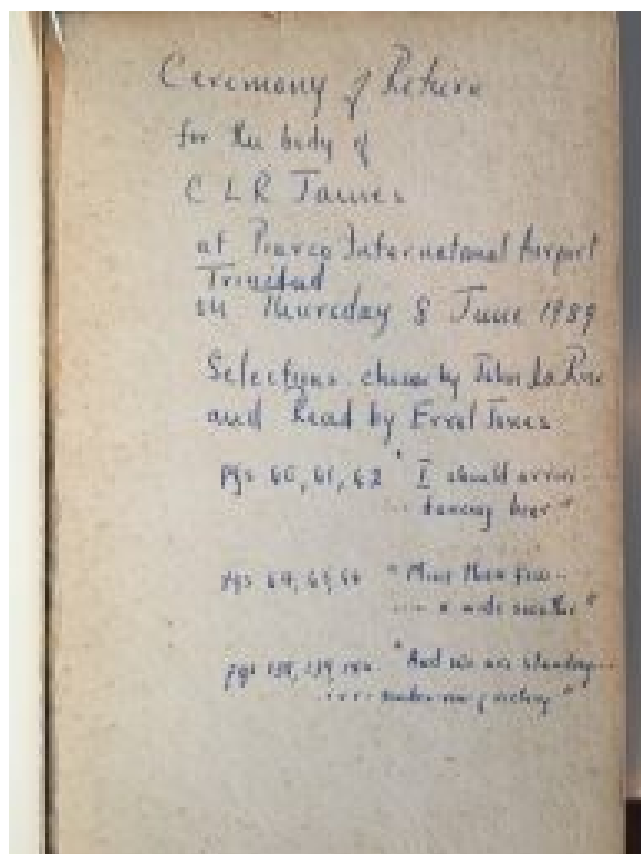 Ceremony of Return
for the body of
C L R James
at Piarco International Airport
Trinidad
on Thursday 8 June 1989
Selections chosen by John La Rose
and Read by Errol Jones
pgs 60, 61, 62 " I should arrive
.... dancing
pgs 64, 65, 66 "
.... a
pgs 138, 139, 140. " And we are standing....
....